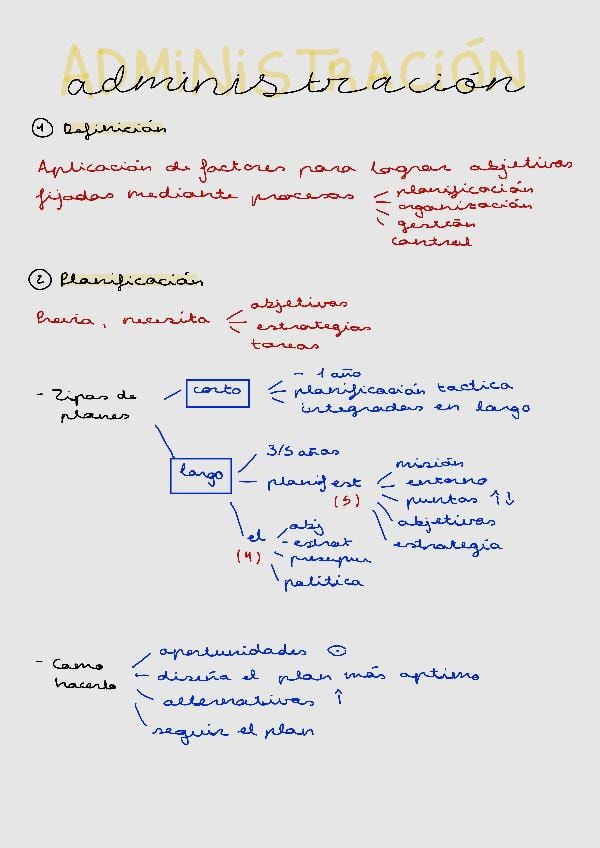 ADMINISTRACIÓN
administración
1 Definición
Aplicación de factores para lograr objetivos
fijados mediante procesos
planificación
organización
gestión
control
2 Planificación
Previa, necesita
objetivos
estrategias
tareas
- Tipos de
planes
corto
- 1 año
planificación tactica
integradas en largo
largo
3/5 años
planif est
(5)
misión
entorno
puntos ↑↓
objetivos
estrategia
el
(4)
obj
estrat
presupu
política
- Como
hacerlo
oportunidades
diseña el plan más optimo
alternativas ↑
seguir el plan